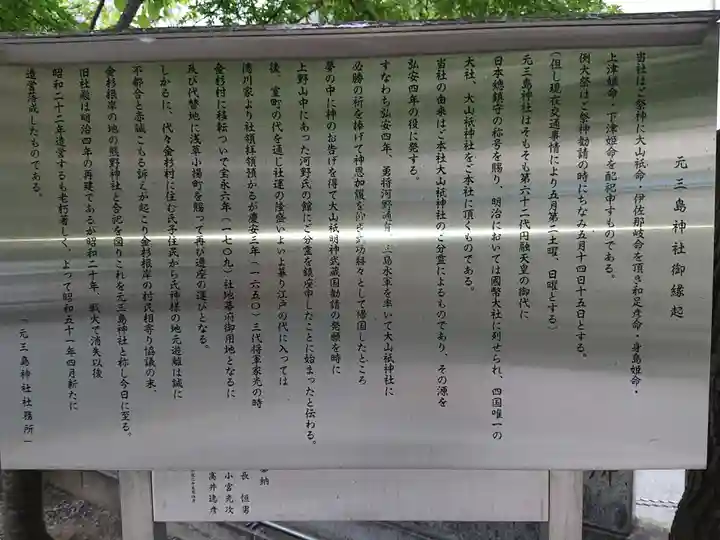 元三島神社御縁起
当社はご祭神に大山祇命・伊佐那岐命を頂き和足彦命・身島姫命・
上津姫命・下津姫命を配祀申すものである。
例大祭はご祭神勧請の時にちなみ五月十四日十五日とする。
(但し現在交通事情により五月第二土曜、日曜とする)
元三島神社はそもそも第六十二代円融天皇の御代に
日本總鎮守の称号を賜り、明治においては國幣大社に列せられ、四国唯一の
大社、大山祇神社をご本社に頂くものである。
当社の由来はご本社大山祇神社のご分霊によるものであり、その源を
弘安四年の役に発する。
すなわち弘安四年、勇将河野通有、三島水軍を率いて大山祇神社に
必勝の祈を捧げて神恩加護を仰ぎ武功赫々として帰国したところ
夢の中に神のお告げを得て大山祇明神武蔵国勧請の発願を時に
上野山中にあった河野氏の館にご分霊を鎮座申したことに始まったと伝わる。
後、室町の代を通じ社運の隆盛いよいよ募り江戸の代に入っては
徳川家より社領拝領預かるが慶安三年(一六五〇)三代将軍家光の時
金杉村に移転ついで宝永六年(一七〇九)社地幕府御用地となるに
及び代替地に浅草小揚町を賜って再び造座の運びとなる。
しかるに、代々金杉村に住む氏子住民から氏神様の地元遊離は誠に
不都合と赤誠こもる訴えが起こり金杉根岸の村民相寄り協議の末、
金杉根岸の地の熊野神社と合祀を図りこれを元三島神社と称し今日に至る。
旧社殿は明治四年の再建であるが昭和二十年、戦火で消失以後
昭和二十二年造営するも老朽著しく、よって昭和五十一年四月新たに
造営落成したものである。
「元三島神社社務所」
奉納
長 恒男
小宮光次
高井逸彦